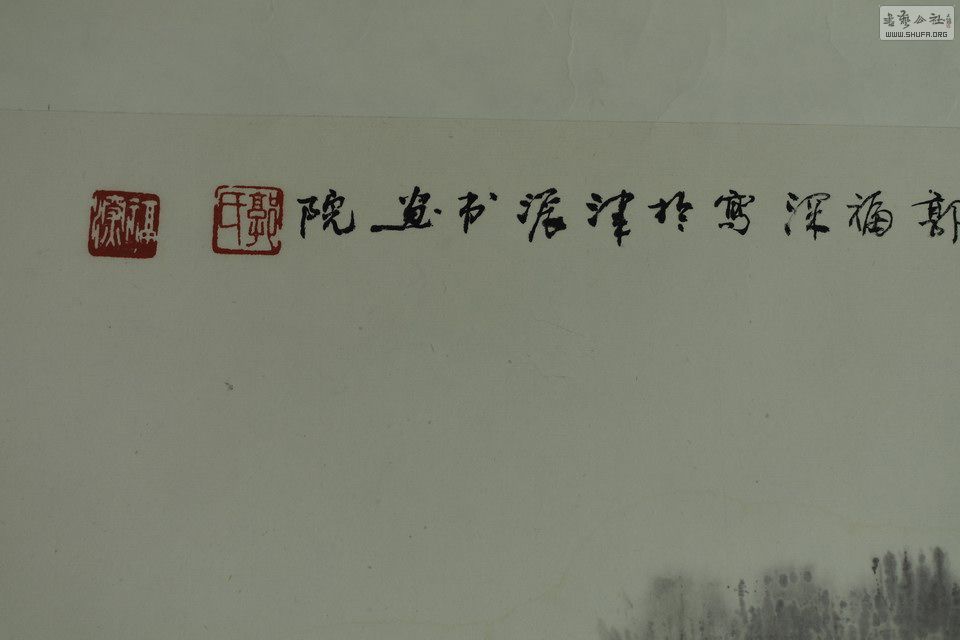 書藝公社
WWW.SHUFA.ORG
郭福深寫於津派书画院
郭氏